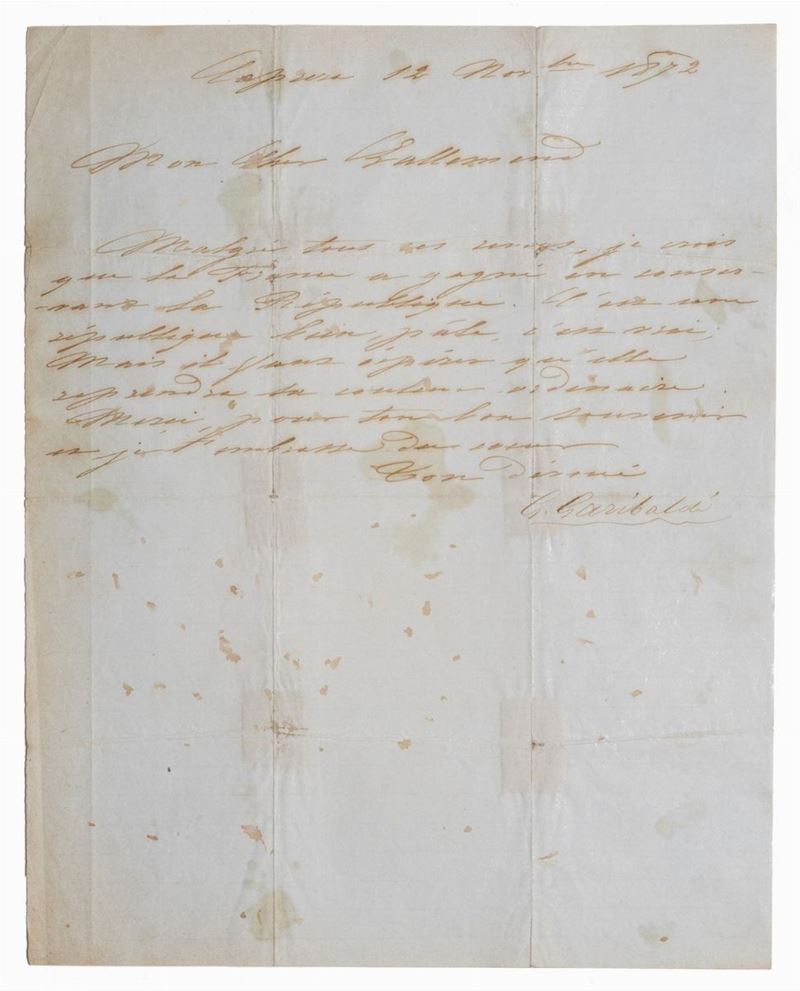 Caprera 12 Nov.bre 1872
Mon cher Lallemend
Malgré tous ses revers, je crois
que la France a gagné en conser-
-vant la République. C'est une
république bien pâle, c'est vrai,
Mais il faut espérer qu'elle
reprendra sa couleur ordinaire.
Merci, pour ton bon souvenir
et je t'embrasse de coeur
Ton dévoué
G. Garibaldi